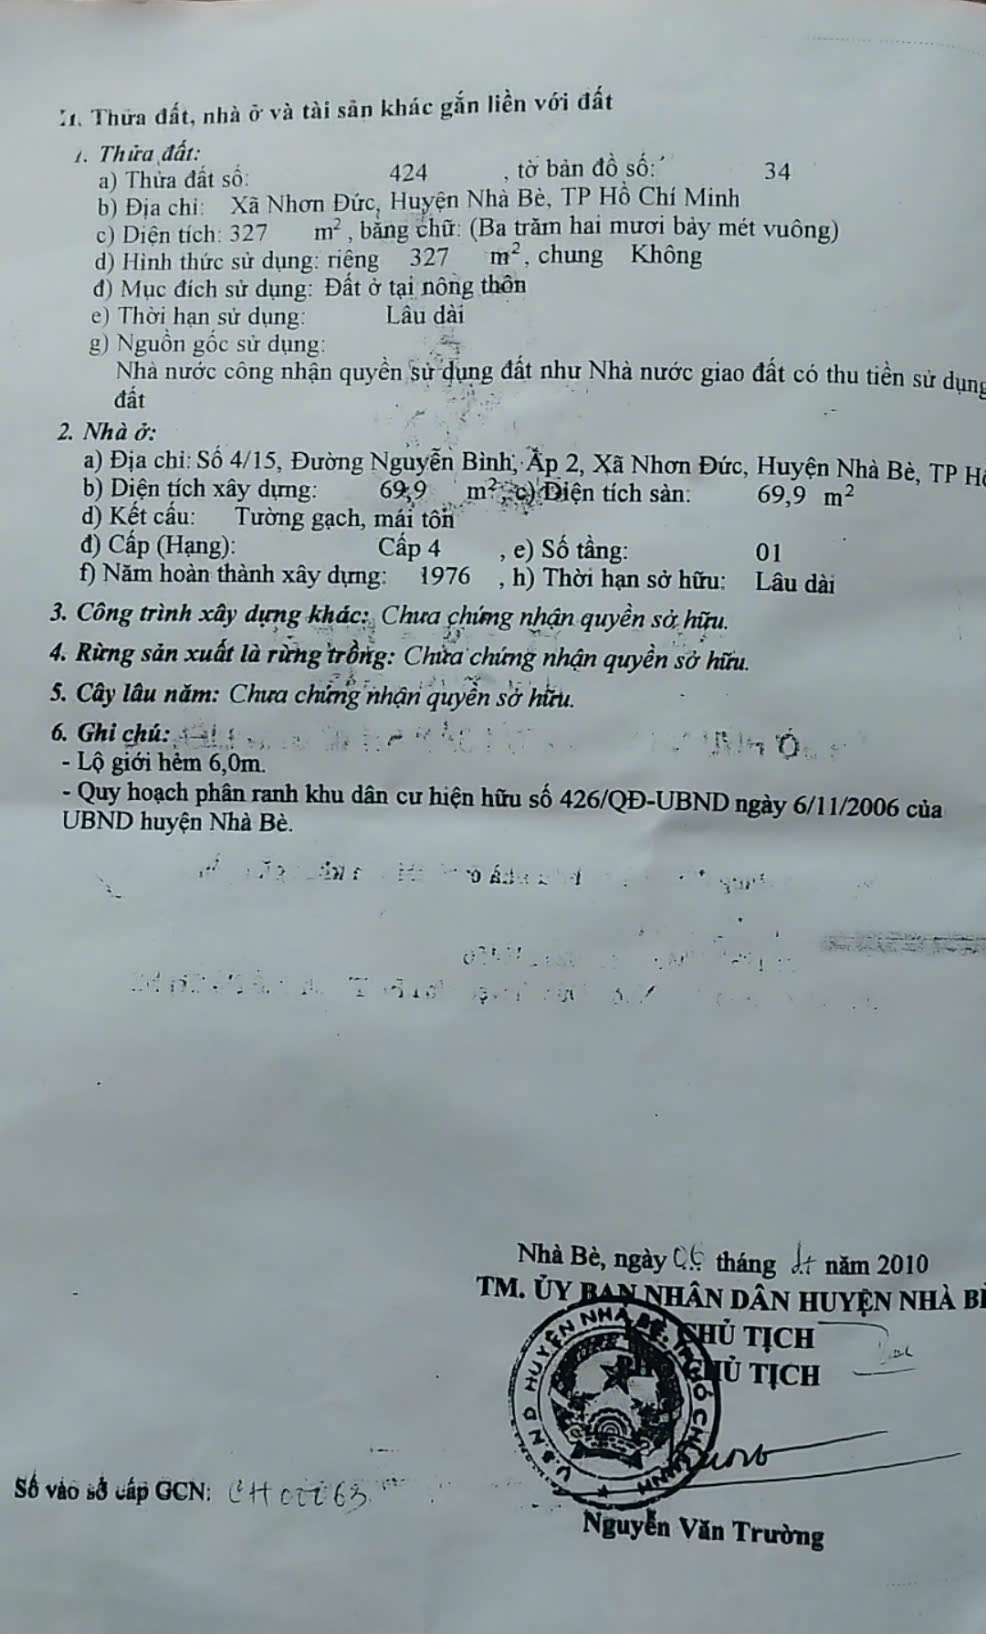 II. Thửa đất, nhà ở và tài sản khác gắn liền với đất
1. Thửa đất:
a) Thửa đất số: 424 , tờ bản đồ số: 34
b) Địa chỉ: Xã Nhơn Đức, Huyện Nhà Bè, TP Hồ Chí Minh
c) Diện tích: 327 m², bằng chữ: (Ba trăm hai mươi bảy mét vuông)
d) Hình thức sử dụng: riêng 327 m², chung Không
đ) Mục đích sử dụng: Đất ở tại nông thôn
e) Thời hạn sử dụng: Lâu dài
g) Nguồn gốc sử dụng:
Nhà nước công nhận quyền sử dụng đất như Nhà nước giao đất có thu tiền sử dụng
đất
2. Nhà ở:
a) Địa chỉ: Số 4/15, Đường Nguyễn Bình, Ấp 2, Xã Nhơn Đức, Huyện Nhà Bè, TP
b) Diện tích xây dựng: 69,9 m², c) Diện tích sàn: 69,9 m²
d) Kết cấu: Tường gạch, mái tôn
đ) Cấp (Hạng): Cấp 4 , e) Số tầng: 01
f) Năm hoàn thành xây dựng: 1976 , h) Thời hạn sở hữu: Lâu dài
3. Công trình xây dựng khác: Chưa chứng nhận quyền sở hữu.
4. Rừng sản xuất là rừng trồng: Chưa chứng nhận quyền sở hữu.
5. Cây lâu năm: Chưa chứng nhận quyền sở hữu.
6. Ghi chú:
- Lộ giới hẻm 6,0m.
- Quy hoạch phân ranh khu dân cư hiện hữu số 426/QĐ-UBND ngày 6/11/2006 của
UBND huyện Nhà Bè.
Nhà Bè, ngày tháng năm 2010
TM. ỦY BAN NHÂN DÂN HUYỆN NHÀ
CHỦ TỊCH
CHỦ TỊCH
U.B.N.D HUYỆN NHÀ BÈ
Số vào sổ cấp GCN:
Nguyễn Văn Trường